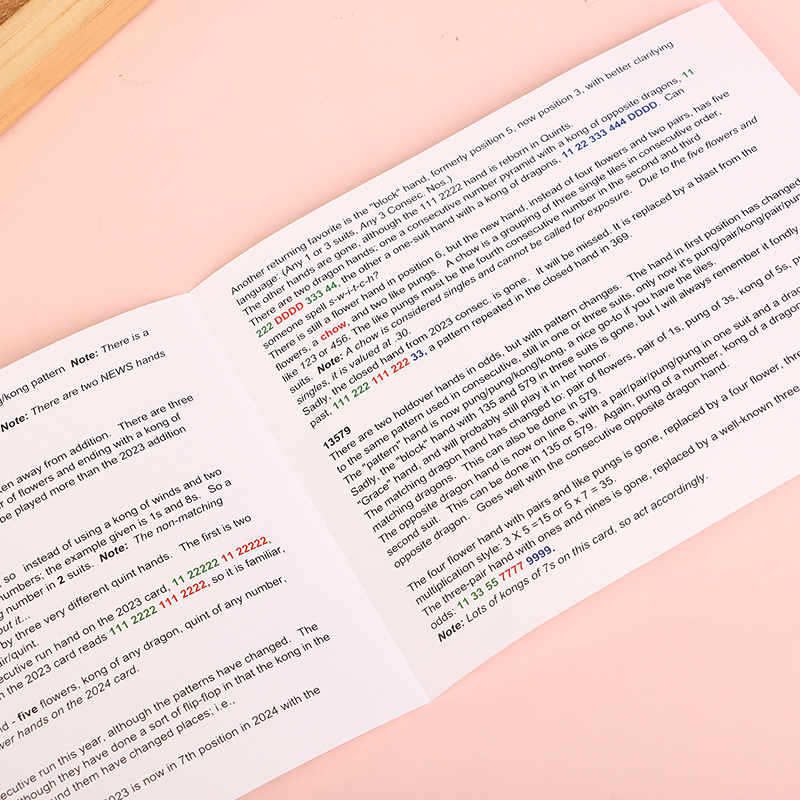 g/kong pattern Note: There is a
Note: There are two NEWS hands
en away from addition. There are three
r of flowers and ending with a kong of
be played more than the 2023 addition
, so instead of using a kong of winds and two
numbers; the example given is 1s and 8s. So a
g number in 2 suits. Note: The non-matching
out it...
by three very different quint hands. The first is two
air/quint.
ecutive run hand on the 2023 card, 11 22222 11 22222,
n the 2023 card reads 111 2222 111 2222, so it is familiar,
nd - five flowers, kong of any dragon, quint of any number,
wer hands on the 2024 card.
ecutive run this year, although the patterns have changed. The
lthough they have done a sort of flip-flop in that the kong in the
und them have changed places; i.e.,
2023 is now in 7th position in 2024 with the
Another returning favorite is the "block" hand, formerly position 5, now position 3, with better clarifying
language: (Any 1 or 3 suits, Any 3 Consec. Nos.)
The other hands are gone, although the 111 2222 hand is reborn in Quints.
There are two dragon hands; one a consecutive number pyramid with a kong of opposite dragons, 11
222 DDDD 333 44, the other a one-suit hand with a kong of dragons, 11 22 333 444 DDDD. Can
someone spell s-w-i-t-c-h?
There is still a flower hand in position 6, but the new hand, instead of four flowers and two pairs, has five
flowers, a chow, and two like pungs. A chow is a grouping of three single tiles in consecutive order,
like 123 or 456. The like pungs must be the fourth consecutive number in the second and third
suits. Note: A chow is considered singles and cannot be called for exposure. Due to the five flowers and
singles, it is valued at .30.
Sadly, the closed hand from 2023 consec. is gone. It will be missed. It is replaced by a blast from the
past, 111 222 111 222 33, a pattern repeated in the closed hand in 369.
13579
There are two holdover hands in odds, but with pattern changes. The hand in first position has changed
to the same pattern used in consecutive, still in one or three suits, only now it's pung/pair/kong/pair/pun
The "pattern" hand is now pung/pung/kong/kong, a nice go-to if you have the tiles.
Sadly, the "block" hand with 135 and 579 in three suits is gone, but I will always remember it fondly
"Grace" hand, and will probably still play it in her honor.
The matching dragon hand has changed to: pair of flowers, pair of 1s, pung of 3s, kong of 5s, p
matching dragons. This can also be done in 579.
The opposite dragon hand is now on line 6, with a pair/pair/pung/pung in one suit and a drag
second suit. This can be done in 135 or 579. Again, pung of a number, kong of a dragon
opposite dragon. Goes well with the consecutive opposite dragon hand.
The four flower hand with pairs and like pungs is gone, replaced by a four flower, thre
multiplication style: 3 X 5 =15 or 5 x 7 = 35.
The three-pair hand with ones and nines is gone, replaced by a well-known three
odds: 11 33 55 7777 9999.
Note: Lots of kongs of 7s on this card, so act accordingly.